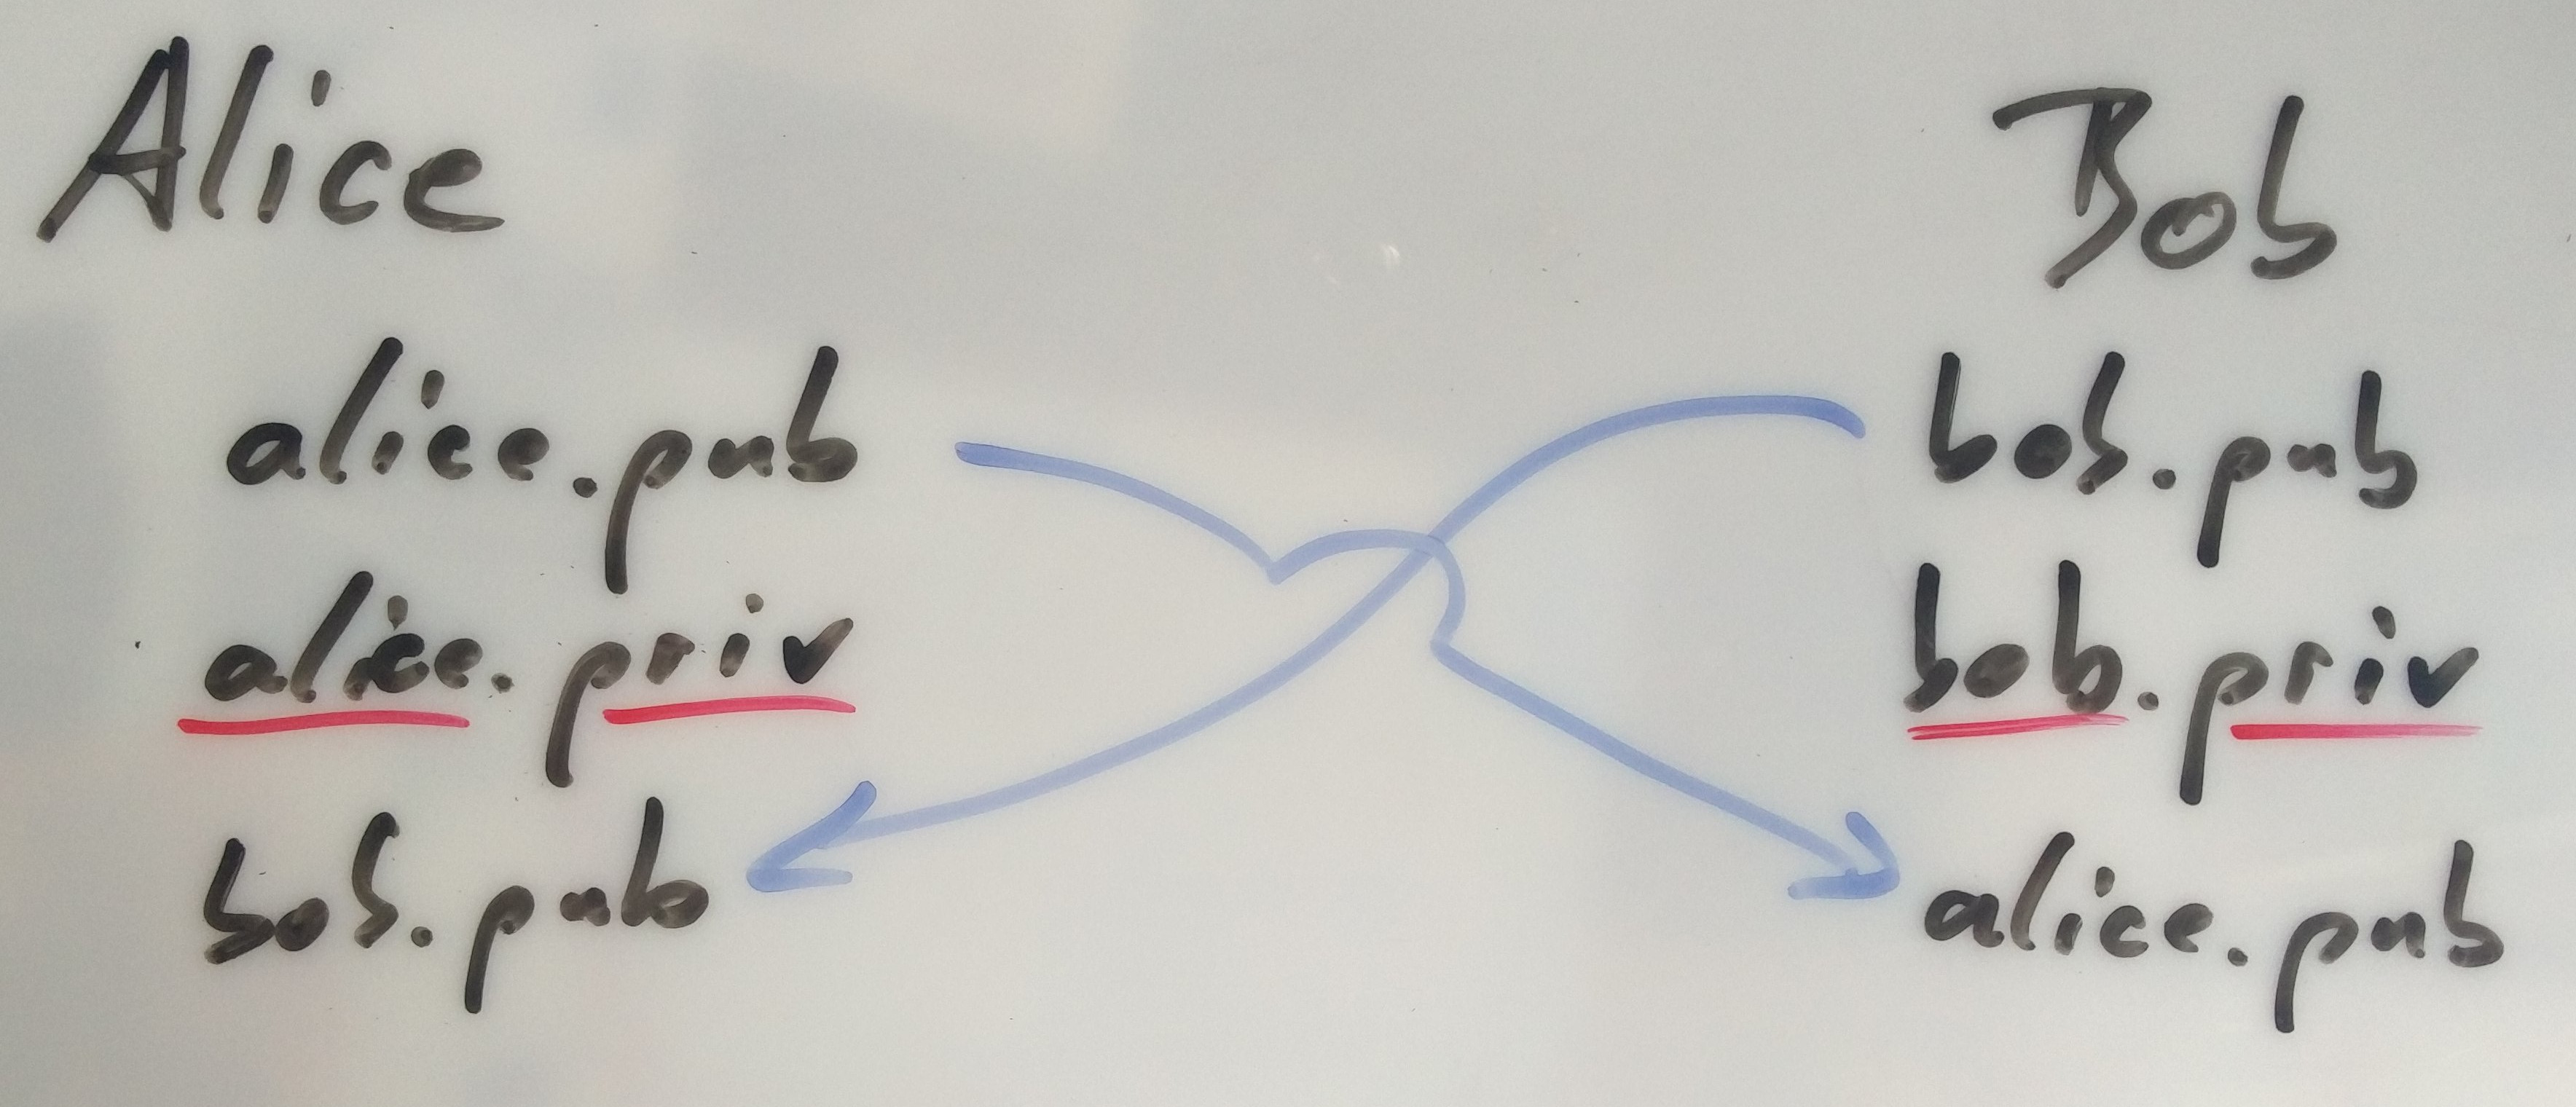 Alice
alice.pub
alice.priv
bob.pub
Bob
bob.pub
bob.priv
alice.pub